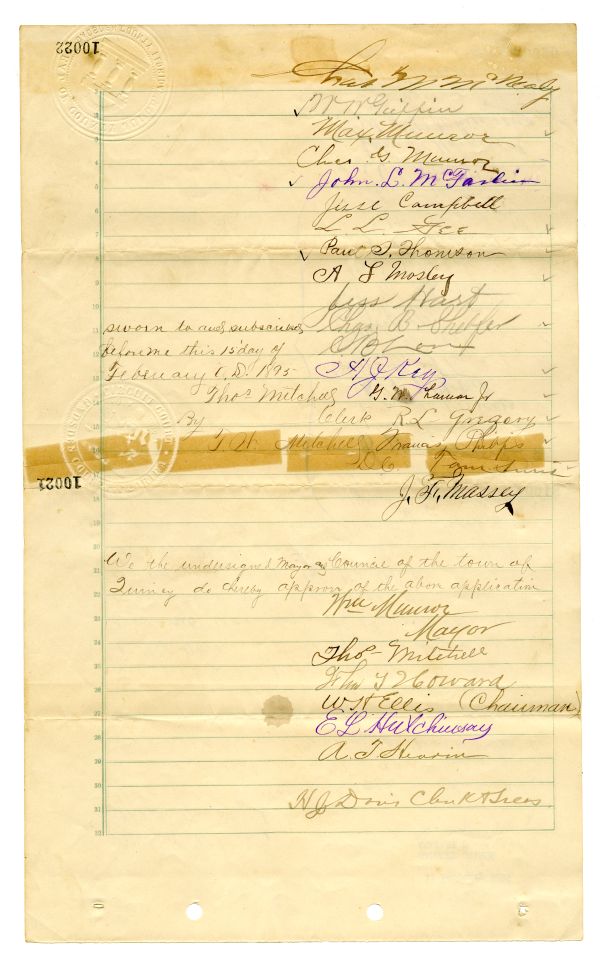 10022
Chas W McNealy
W W
Max Munroe
Chas. G. Munroe
John. L. McFarlin
Jesse Campbell
L L Gee
Paul S. Thomson
A F Mosley
Jess Hart
sworn to and subscribed Chas B Shelfer
before me this 15 day of
February A.D. 1895 A J Key
Thos Mitchell G. W. Jr
By Clerk R L Gregory
T W Mitchell Francis
D C
10021
J. F. Massey
We the undersigned Mayor & Council of the town of
Quincy do hereby approve of the above application
Wm Munroe
Mayor
Thos Mitchell
Jno T Howard
W H Ellis (Chairman)
E L Hutchinson
A. T Hearin
H J Davis Clerk & Treas.